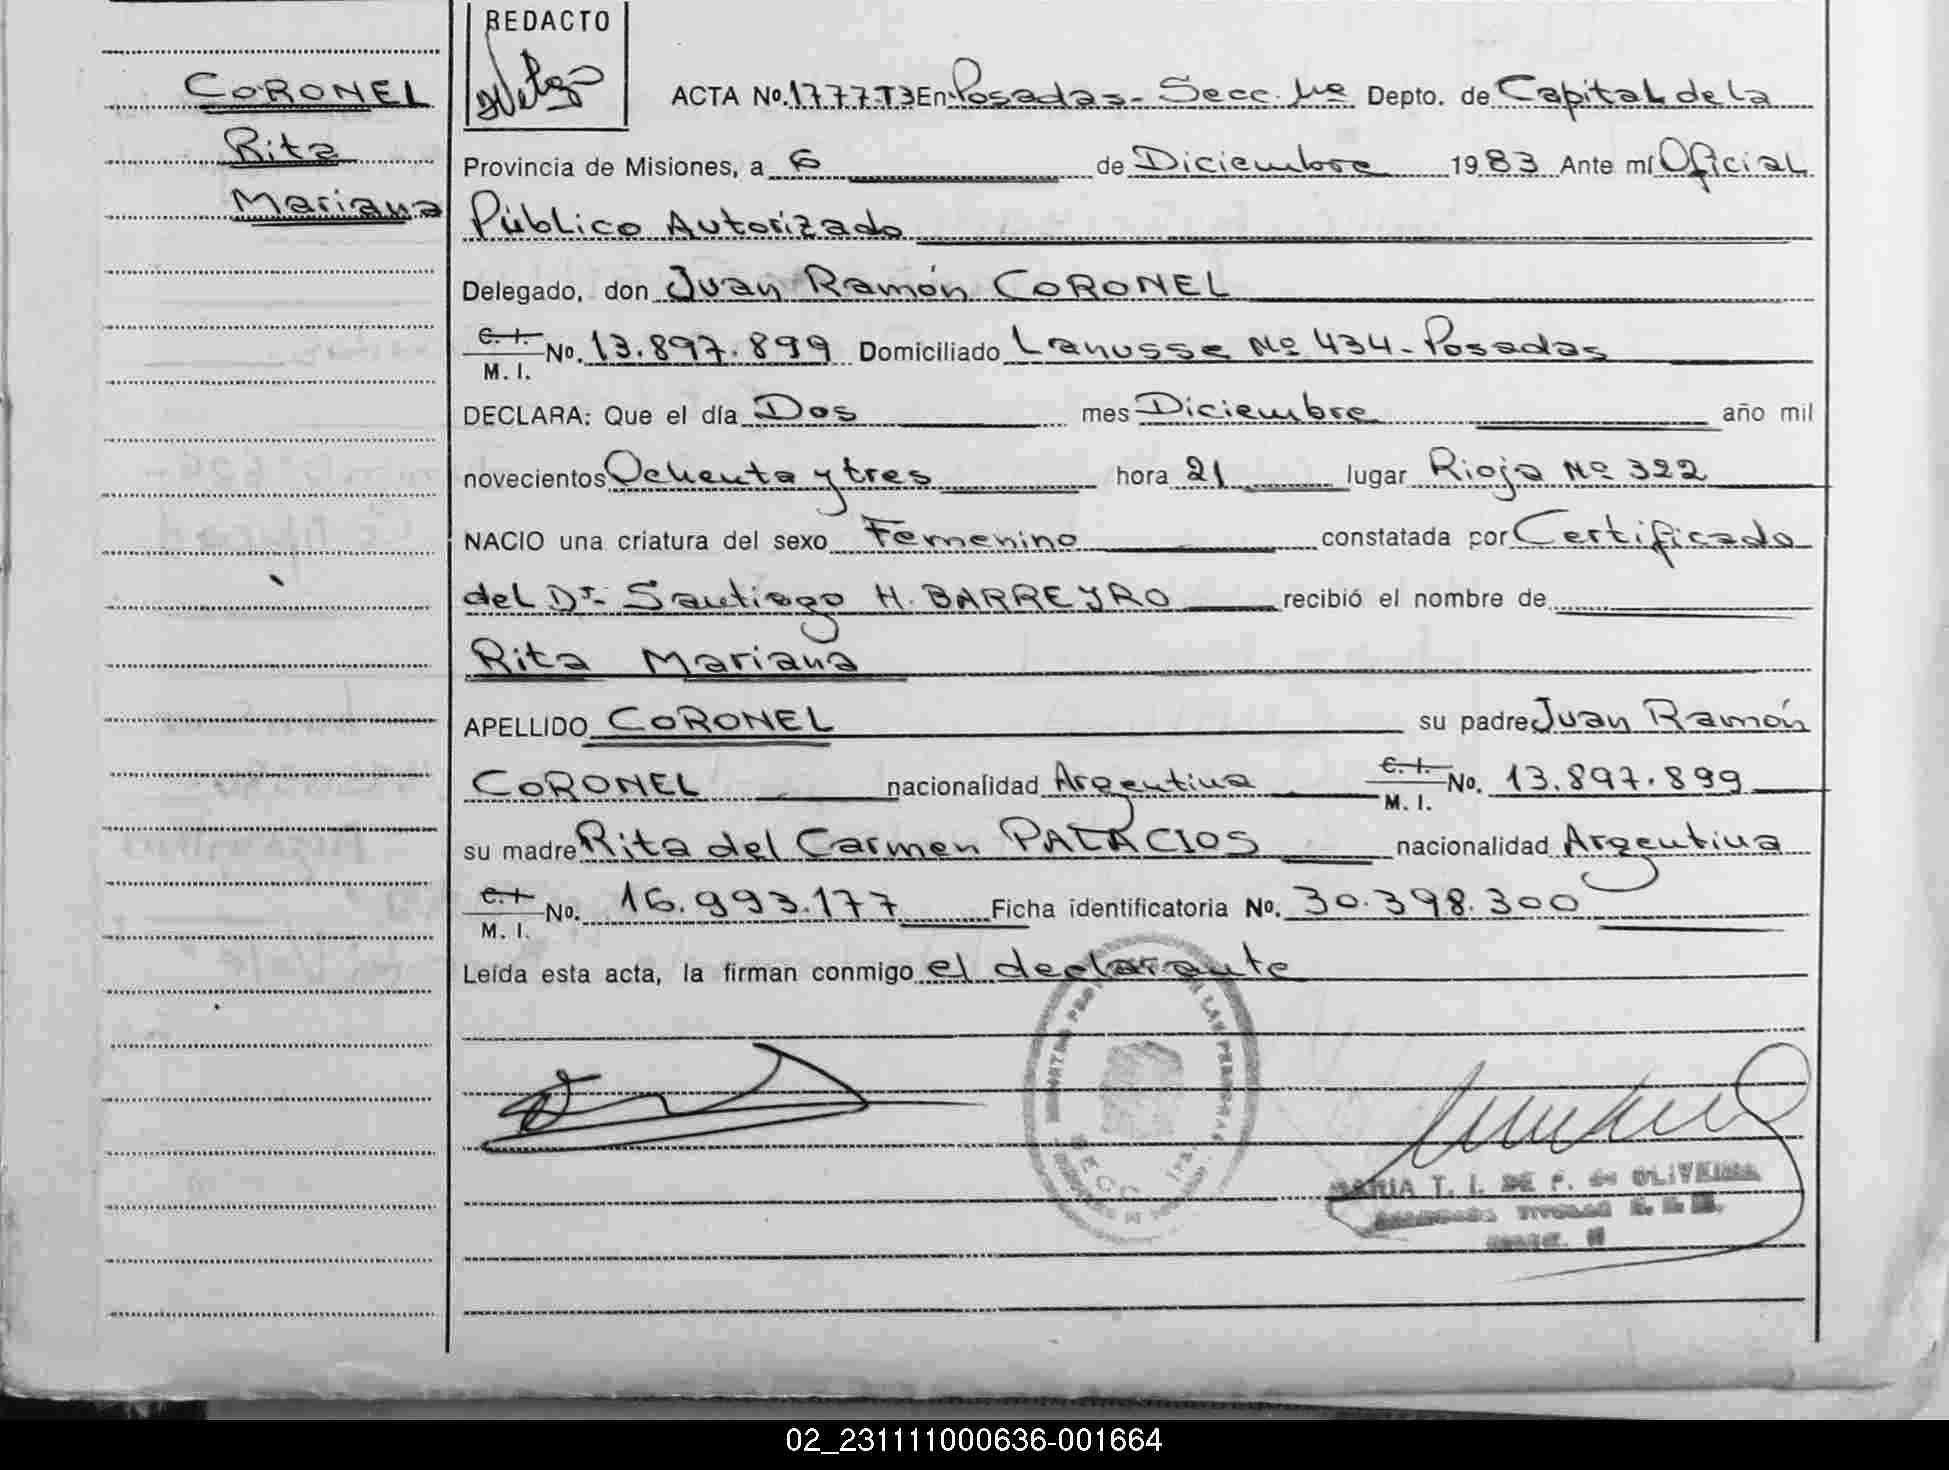 CORONEL
Rita
Mariana
REDACTO
ACTA No. 1777 T3 En Posadas - Secc. 1ra Depto. de Capital de la
Provincia de Misiones, a 6 de Diciembre 1983 Ante mí Oficial
Público Autorizado
Delegado, don Juan Ramón CORONEL
C. I.
M. I. No. 13.897.899 Domiciliado Lanusse Nº 434 - Posadas
DECLARA: Que el día Dos mes Diciembre año mil
novecientos Ochenta y tres hora 21 lugar Rioja Nº 322
NACIO una criatura del sexo Femenino constatada por Certificado
del Dr. Santiago H. BARREYRO recibió el nombre de
Rita Mariana
APELLIDO CORONEL su padre Juan Ramón
CORONEL nacionalidad Argentina C. I. M. I. No. 13.897.899
su madre Rita del Carmen PALACIOS nacionalidad Argentina
C. I.
M. I. No. 16.993.177 Ficha identificatoria No. 30.398.300
Leída esta acta, la firman conmigo el declarante
LAS PERSONAS
SECC. 1ra
MARIA T. I. DE F. de OLIVEIRA
02_231111000636-001664